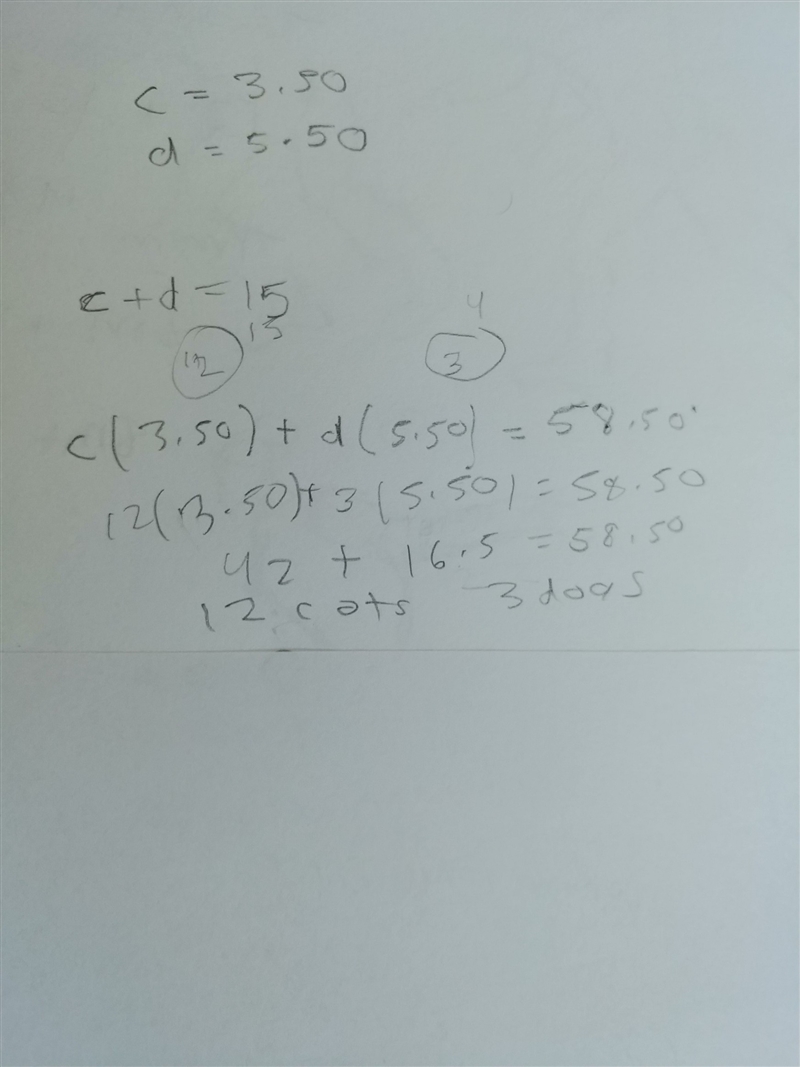 c = 3.50
d = 5.50
c + d = 15
13
4
12
3
c(3.50) + d(5.50) = 58.50
12(3.50) + 3(5.50) = 58.50
42 + 16.5 = 58.50
12 cats 3 dogs